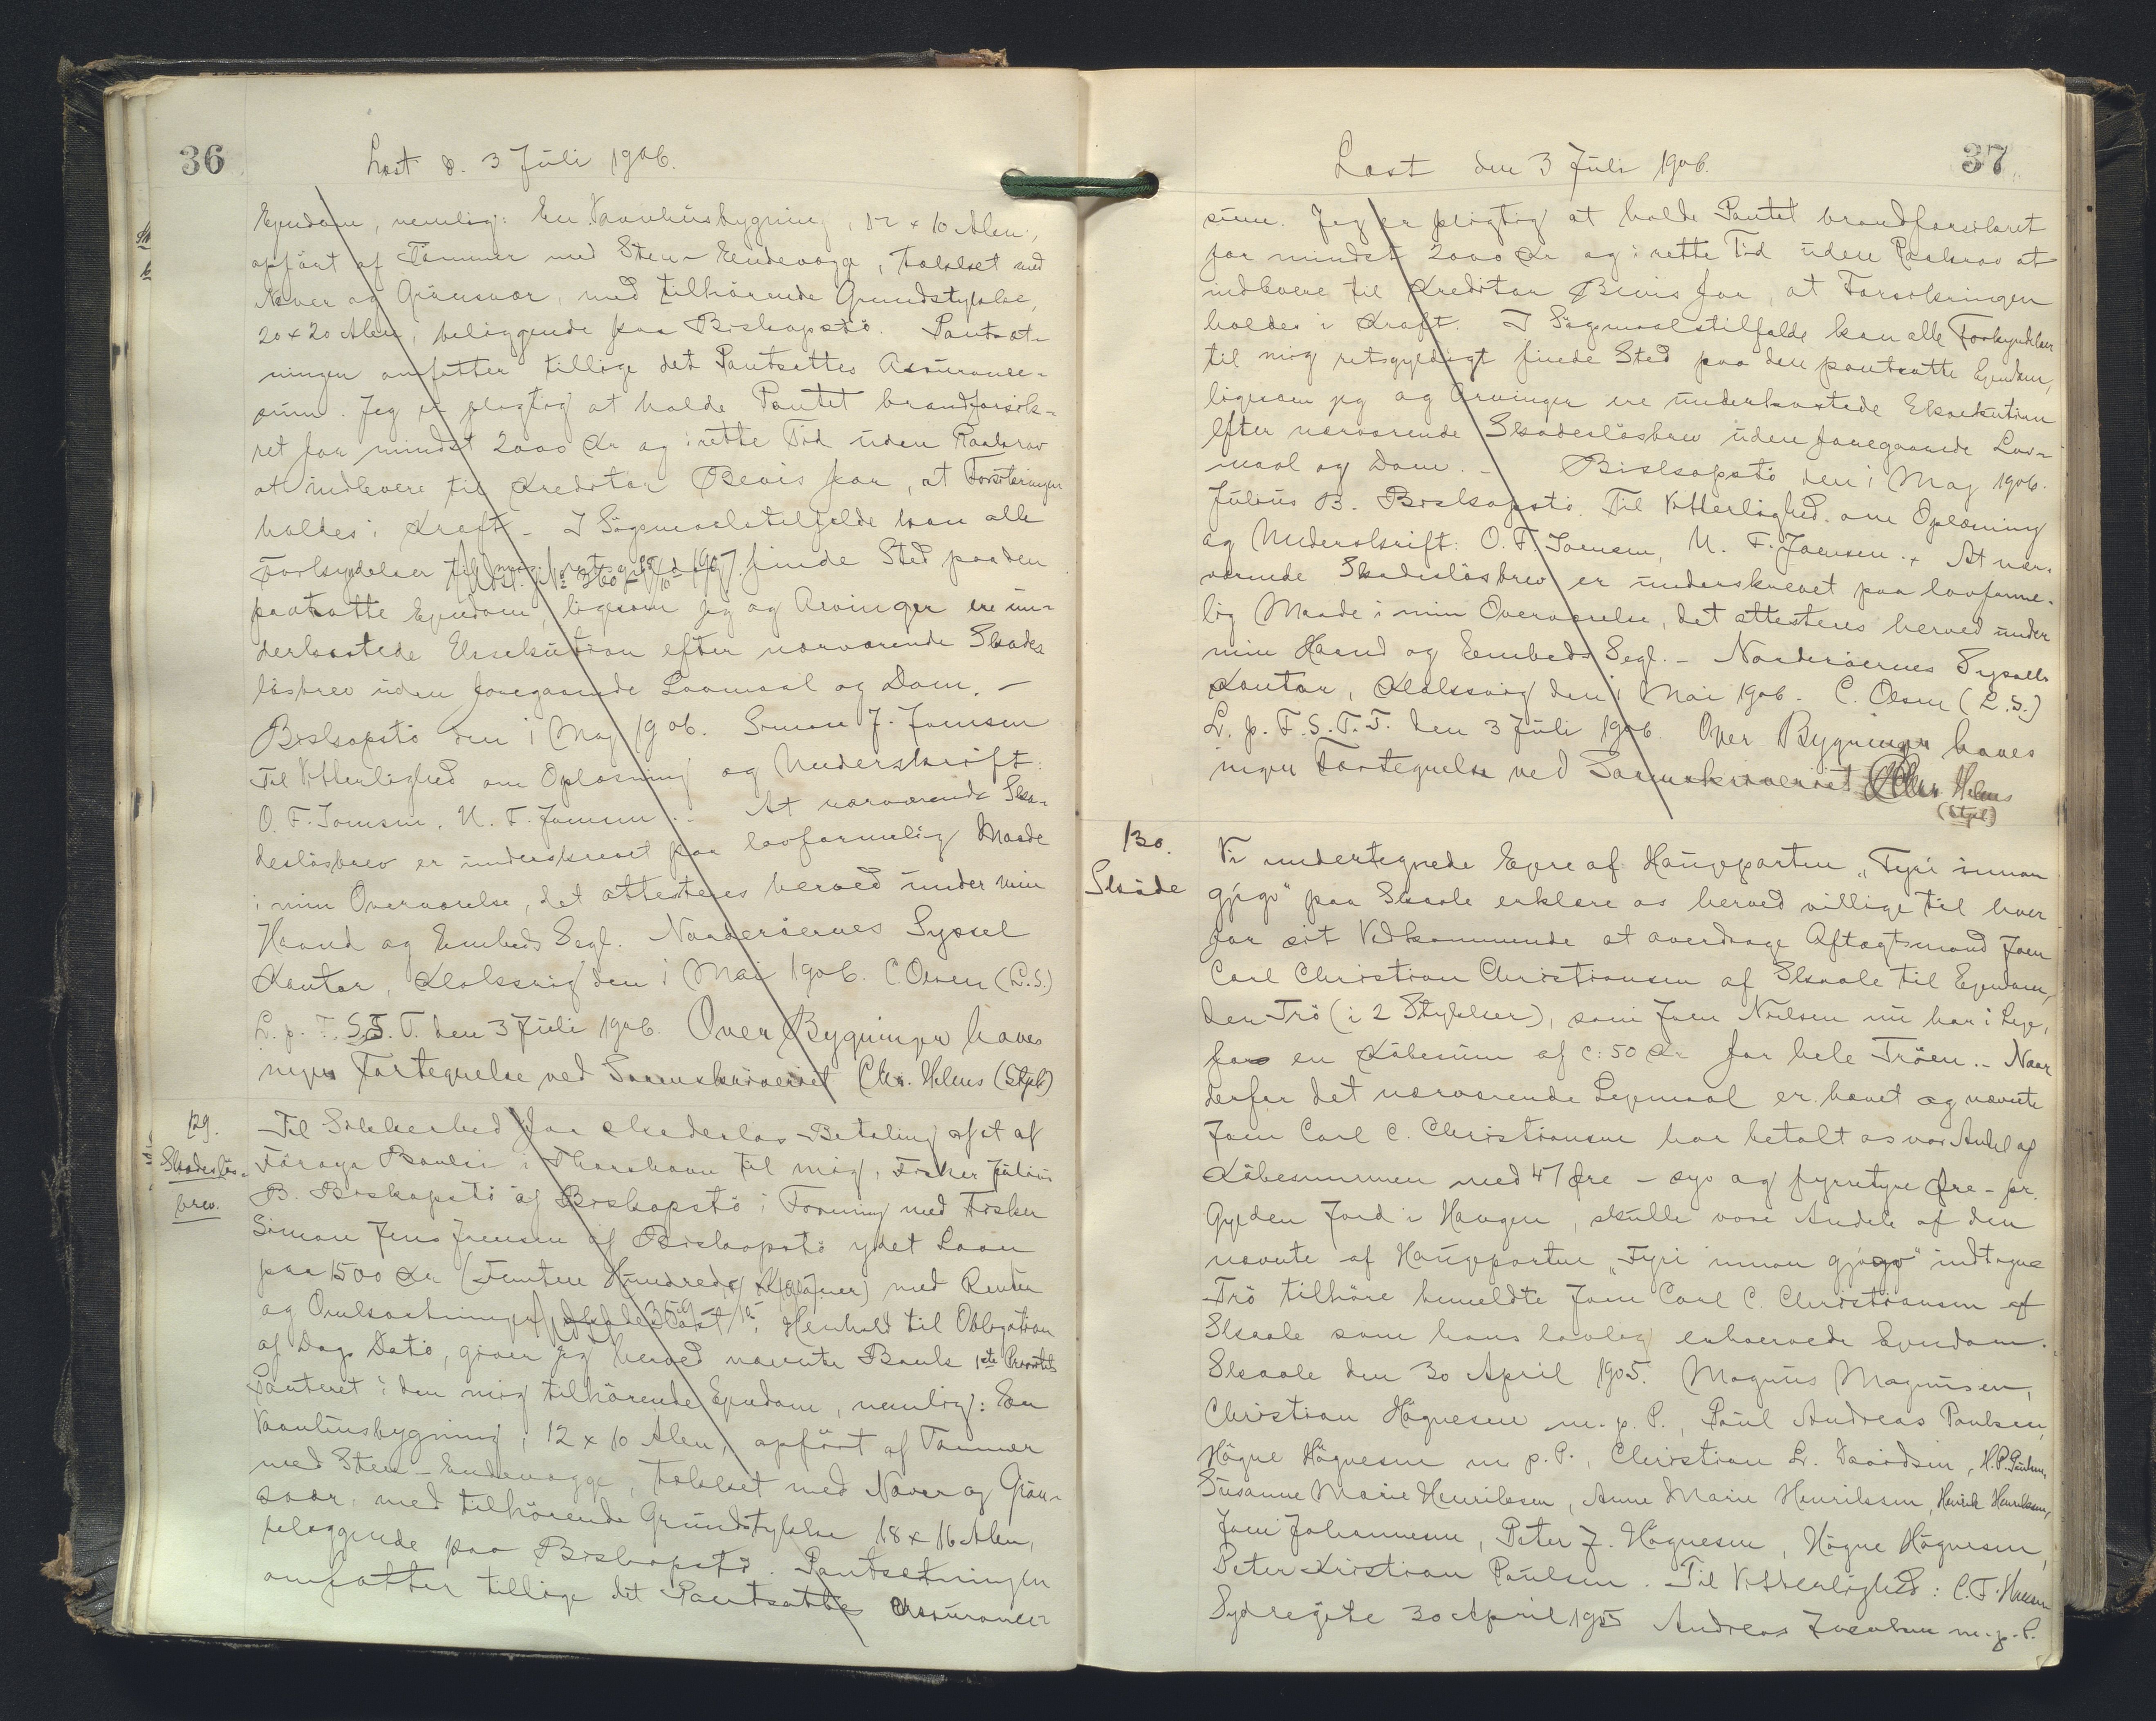 36
Læst d. 3 Juli 1906.
Ejendom, nemlig: En Vaanhusbygning, 12 x 10 Alen,
opført af Tømmer med Sten-Endevægge, takket med
Næver og Grønsvær, med tilhørende Grundstykke,
20 x 20 Alen, beliggende paa Biskopstö. Pantsæt-
ningen omfatter tillige det Pantsattes Assurance-
sum. Jeg er pligtig at holde Pantet brandforsik-
ret for mindst 2000 Kr og i rette Tid uden Paakrav
at indlevere til Kreditor Bevis for, at Forsikringen
holdes i Kraft. - I Søgsmaalstilfælde kan alle
Forkyndelser til mig finde Sted paa den
pantsatte Ejendom, ligesom jeg og Arvinger ere un-
derkastede Eksekution efter nærværende Skades
løsbrev uden foregaaende Lovmaal og Dom. -
Biskopstö den 1 Maj 1906. Simon J. Joensen
Til Vitterlighed om Oplæsning og Underskrift:
O. F. Joensen. U. F. Joensen .. At nærværende Ska-
desløsbrev er underskrevet paa lovformelig Maade
i min Overværelse, det attesteres herved under min
Haand og Embeds Segl. Norderøernes Syssel
Kontor, Klaksvig den 1 Mai 1906. C. Olsen (L.S.)
L. p. F. S. T. T. den 3 Juli 1906. Over Bygninger haves
ingen Fortegnelse ved Sorenskriveriet Chr. Helms (Stpl)
129.
Skadesløs-
brev.
Til Sikkerhed for skadesløs Betaling af et af
Föroya Banki i Thorshavn til mig, Fisker Julius
B. Biskopstö af Biskopstö i Forening med Fisker
Simon Jens Joensen af Biskopstö ydet Laan
paa 1500 Kr (Femten Hundrede Kroner) med Renter
og Omkostninger, alt i Henhold til Obligation
af Dags Dato, giver jeg herved nævnte Bank 1ste Prioritets
Panteret i den mig tilhørende Ejendom, nemlig: En
Vaanhusbygning, 12 x 10 Alen, opført af Tømmer
med Sten-Endevægge, takket med Næver og Grøn-
svær, med tilhørende Grundstykke 18 x 16 Alen,
beliggende paa Biskopstö. Pantsætningen
omfatter tillige det Pantsattes Assurance-
37
Læst den 3 Juli 1906.
sum. Jeg er pligtig at holde Pantet brandforsikret
for mindst 2000 Kr og i rette Tid uden Paakrav at
indlevere til Kreditor Bevis for, at Forsikringen
holdes i Kraft. I Søgsmaalstilfælde kan alle Forkyndelser
til mig retsgyldigt finde Sted paa den pantsatte Ejendom,
ligesom jeg og Arvinger ere underkastede Eksekution
efter nærværende Skadesløsbrev uden foregaaende Lov-
maal og Dom. - Biskopstö den 1 Maj 1906.
Julius B. Biskopstö. Til Vitterlighed om Oplæsning
og Underskrift: O. F. Joensen, U. F. Joensen. At nær-
værende Skadesløsbrev er underskrevet paa lovforme-
lig Maade i min Overværelse, det attesteres herved under
min Haand og Embeds Segl. - Norderøernes Syssel
Kontor, Klaksvig den 1 Mai 1906. C. Olsen (L.S.)
L. p. F. S. T. T. den 3 Juli 1906. Over Bygninger haves
ingen Fortegnelse ved Sorenskriveriet Helms
(Stpl)
130.
Skøde
Vi undertegnede Ejere af Haugeparten "Fyri innan
gjógv" paa Skaale erklære os herved villige til hver
for sit Vedkommende at overdrage Aftægtsmand Joen
Carl Christian Christiansen af Skaale til Ejendom,
den Trö (i 2 Stykker), som Joen Nielsen nu har i Leje,
for en Købesum af c: 50 Kr for hele Tröen.. Naar
derfor det nærværende Lejemaal er hævet og nævnte
Joen Carl C. Christiansen har betalt os vor Andel af
Købesummen med 47 Øre - syv og fyrretyve Øre - pr.
Gylden Jord i Haugen, skulle vore Andele af den
nævnte af Haugeparten "Fyri innan gjógv" indtagne
Trö tilhøre bemeldte Joen Carl C. Christiansen af
Skaale som hans lovlig erhvervede Ejendom.
Skaale den 30 April 1905. Magnus Magnusen,
Christian Högnesen m. p. P., Paul Andreas Poulsen,
Högne Högnesen m. p. P., Christian L. Davidsen, H.P. Poulsen,
Susanne Marie Henriksen, Anne Marie Henriksen, Henrik Henriksen,
Joen Johannesen, Peter J. Högnesen, Högne Högnesen,
Peter Kristian Poulsen. Til Vitterlighed: C. F. Hansen
Sydregøte 30 April 1905 Andreas Jacobsen m. p. P.